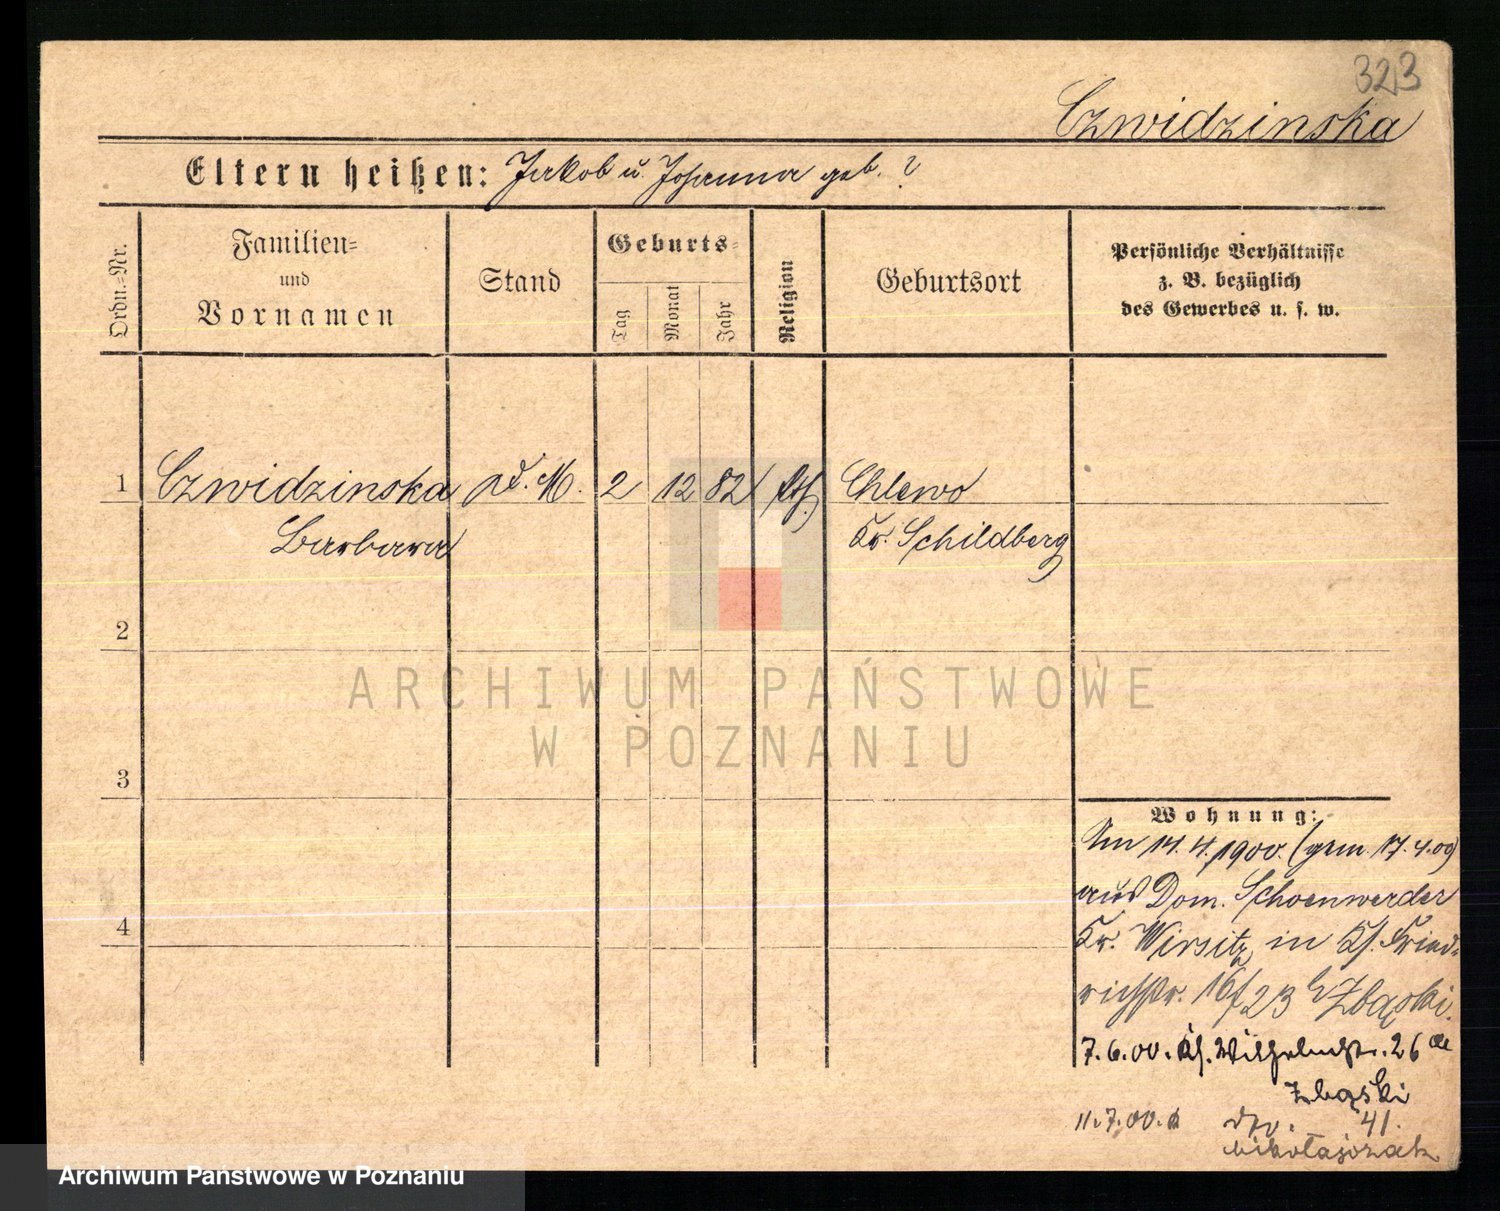 323
Czwidzinska
Eltern heißen: Jakob u. Johanna geb. ?
Ordn.-Nr.
Familien-
und
Vornamen
Stand
Geburts-
Tag
Monat
Jahr
Religion
Geburtsort
Persönliche Verhältnisse
z. B. bezüglich
des Gewerbes u. s. w.
1 Czwidzinska d. M. 2 12 82 kth. Chlewo
Barbara Kr. Schildberg
2
3
4
Wohnung:
Am 14.4.1900. (gem. 17.4.00)
aus Dom. Schoenwerder
Kr. Wirsitz in Kl. Fried-
richstr. 16/23 b/Zbąski.
7.6.00. Kl. Wilhelmstr. 26
Zbąski
11.7.00. dto. 41.
Mikołajczak
ARCHIWUM PAŃSTWOWE
W POZNANIU
Archiwum Państwowe w Poznaniu